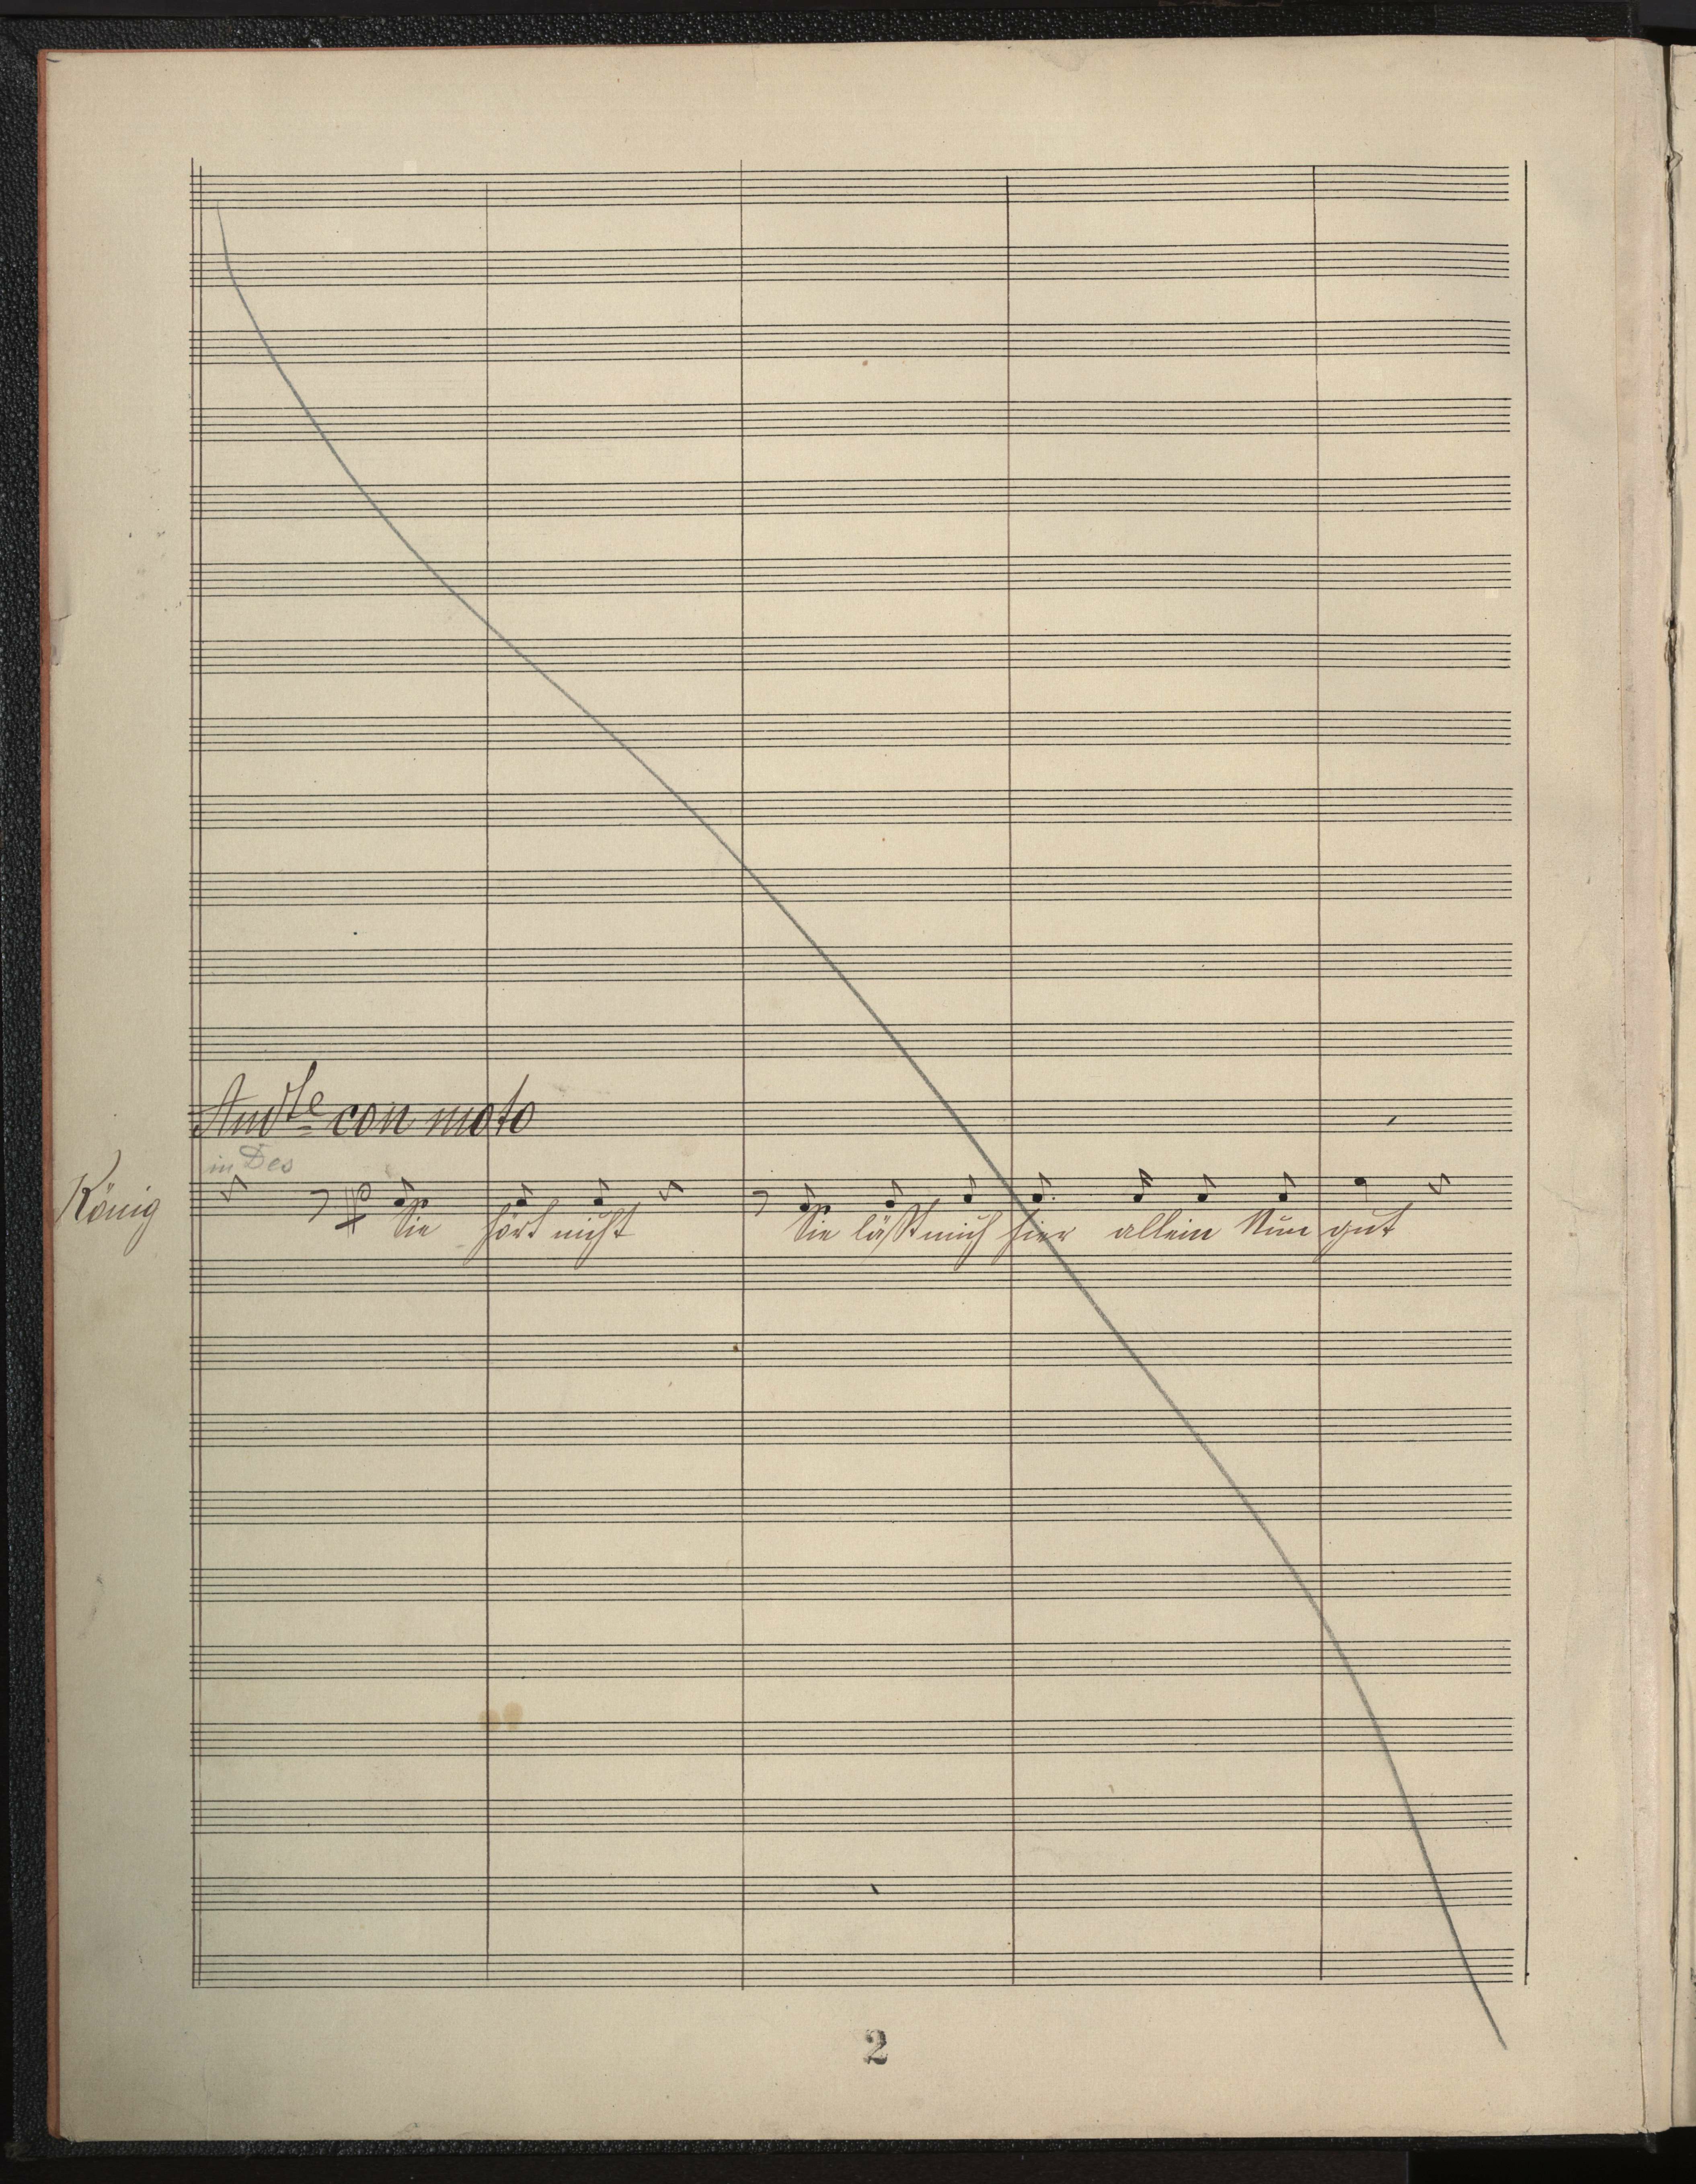 Andte con moto
in Des
König
Sie hört nicht Sie läßt mich hier allein Nun gut
2